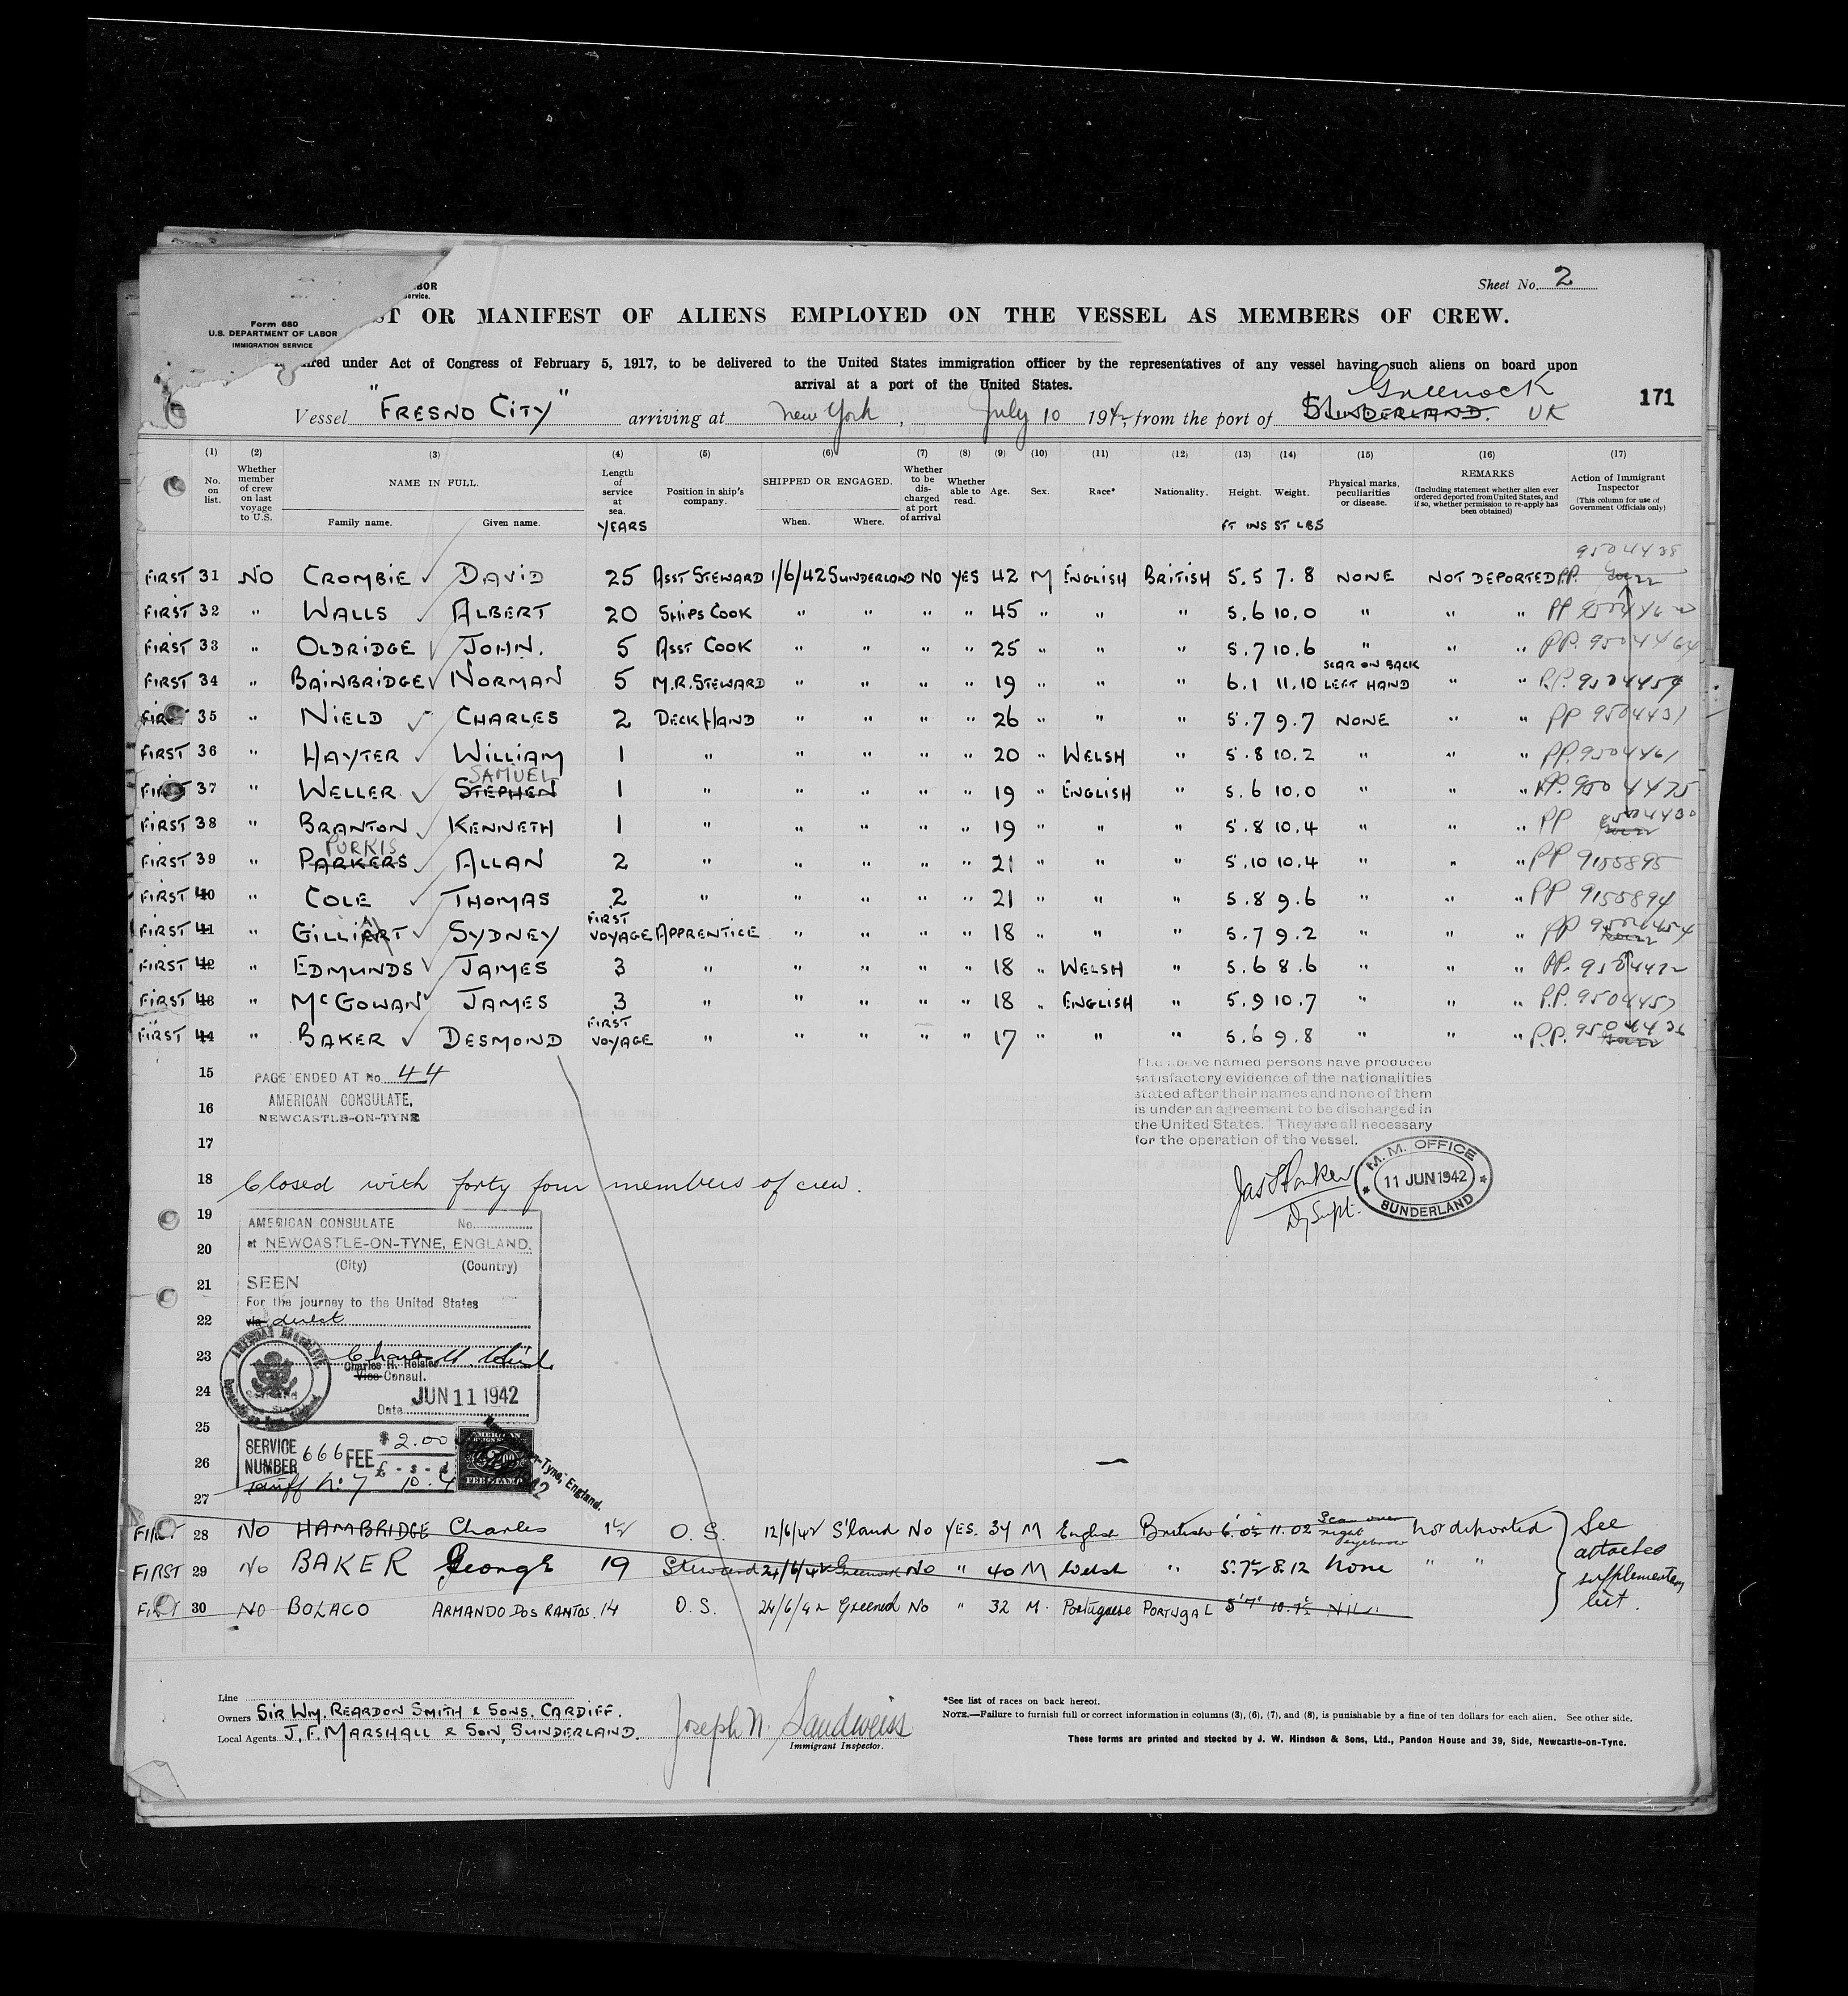 Sheet No. 2
LABOR
Service.
Form 680
U.S. DEPARTMENT OF LABOR
IMMIGRATION SERVICE
ST OR MANIFEST OF ALIENS EMPLOYED ON THE VESSEL AS MEMBERS OF CREW.
ired under Act of Congress of February 5, 1917, to be delivered to the United States immigration officer by the representatives of any vessel having such aliens on board upon
arrival at a port of the United States.
Greenock
171
Vessel "FRESNO CITY" arriving at New York, July 10 1942, from the port of SUNDERLAND. UK
(1) (2) (3) (4) (5) (6) (7) (8) (9) (10) (11) (12) (13) (14) (15) (16) (17)
No. on list.
Whether member of crew on last voyage to U.S.
NAME IN FULL.
Family name. Given name.
Length of service at sea. YEARS
Position in ship's company.
SHIPPED OR ENGAGED.
When. Where.
Whether to be discharged at port of arrival
Whether able to read.
Age.
Sex.
Race*
Nationality.
Height. FT INS
Weight. ST LBS
Physical marks, peculiarities or disease.
REMARKS
(Including statement whether alien ever ordered deported from United States, and if so, whether permission to re-apply has been obtained)
Action of Immigrant Inspector
(This column for use of Government Officials only)
9504438
FIRST 31 NO CROMBIE DAVID 25 ASST STEWARD 1/6/42 SUNDERLAND NO YES 42 M ENGLISH BRITISH 5.5 7.8 NONE NOT DEPORTED PP.
FIRST 32 " WALLS ALBERT 20 SHIPS COOK " " " " 45 " " " 5.6 10.0 " " " PP
FIRST 33 " OLDRIDGE JOHN. 5 ASST COOK " " " " 25 " " " 5.7 10.6 " " " PP. 9504464
FIRST 34 " BAINBRIDGE NORMAN 5 M.R.STEWARD " " " " 19 " " " 6.1 11.10 SCAR ON BACK LEFT HAND " " P.P. 9504459
FIRST 35 " NIELD CHARLES 2 DECK HAND " " " " 26 " " " 5.7 9.7 NONE " " PP 9504431
FIRST 36 " HAYTER WILLIAM 1 " " " " " 20 " WELSH " 5.8 10.2 " " " PP. 9504461
SAMUEL
FIRST 37 " WELLER STEPHEN 1 " " " " " 19 " ENGLISH " 5.6 10.0 " " " PP. 9504475
FIRST 38 " BRANTON KENNETH 1 " " " " " 19 " " " 5.8 10.4 " " " PP 9504430
PURKIS
FIRST 39 " PARKERS ALLAN 2 " " " " " 21 " " " 5.10 10.4 " " " PP 9155895
FIRST 40 " COLE THOMAS 2 " " " " " 21 " " " 5.8 9.6 " " " PP 9155894
FIRST 41 " GILLIART SYDNEY FIRST VOYAGE APPRENTICE " " " " 18 " " " 5.7 9.2 " " " PP
FIRST 42 " EDMUNDS JAMES 3 " " " " " 18 " WELSH " 5.6 8.6 " " " PP. 9504422
FIRST 43 " McGOWAN JAMES 3 " " " " " 18 " ENGLISH " 5.9 10.7 " " " P.P. 9504457
FIRST 44 " BAKER DESMOND FIRST VOYAGE " " " " " 17 " " " 5.6 9.8 " " " P.P. 9504436
15 PAGE ENDED AT No. 44
16 AMERICAN CONSULATE,
NEWCASTLE-ON-TYNE
The above named persons have produced
satisfactory evidence of the nationalities
stated after their names and none of them
is under an agreement to be discharged in
the United States. They are all necessary
for the operation of the vessel.
17
18 Closed with forty four members of crew.
Jas Parker
Dy Supt.
M. M. OFFICE
11 JUN 1942
SUNDERLAND
19 AMERICAN CONSULATE No.
20 at NEWCASTLE-ON-TYNE, ENGLAND.
(City) (Country)
21 SEEN
For the journey to the United States
22 via direct
23
Charles H. Heisler
Vice Consul.
24 Date JUN 11 1942
25
SERVICE NUMBER 666 FEE $ 2.00
26 £ - s - d
Tariff No. 7 10.4
AMERICAN
FEE STAMP
-Tyne, England.
27
FIRST 28 NO HAMBRIDGE Charles 1½ O.S. 12/6/42 S'land NO YES. 34 M English British 6.0½ 11.02 Scar over right eyebrow not deported
FIRST 29 NO BAKER George 19 Steward 24/6/42 Greenock NO " 40 M Welsh " 5.7½ 8.12 None " "
FIRST 30 NO BOLACO ARMANDO DOS RAMTOS. 14 O.S. 24/6/42 Greenock NO " 32 M. Portuguese PORTUGAL 5'7" 10.7½ NIL
See
attached
supplementary
list.
Line
Owners SIR WM. REARDON SMITH & SONS. CARDIFF.
Local Agents J. F. MARSHALL & SON, SUNDERLAND.
Joseph N. Sandweiss
Immigrant Inspector.
*See list of races on back hereof.
NOTE.—Failure to furnish full or correct information in columns (3), (6), (7), and (8), is punishable by a fine of ten dollars for each alien. See other side.
These forms are printed and stocked by J. W. Hindson & Sons, Ltd., Pandon House and 39, Side, Newcastle-on-Tyne.